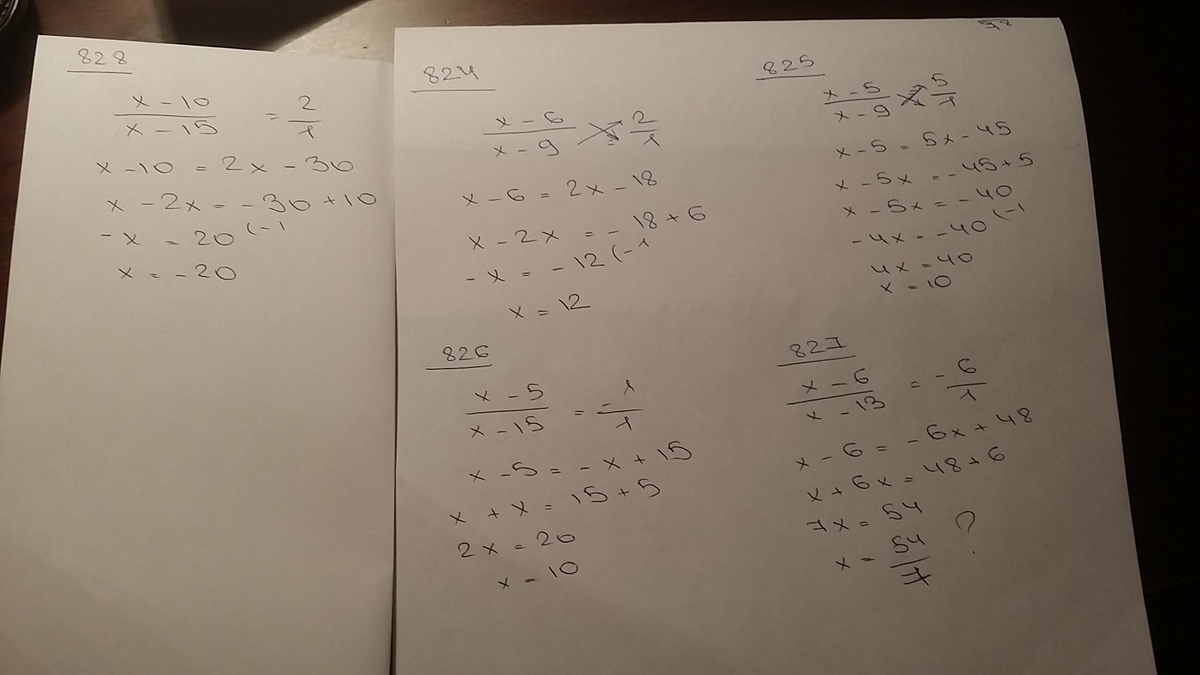 828
x - 10 / x - 15 = 2 / 1
x - 10 = 2x - 30
x - 2x = - 30 + 10
- x = 20 (-1
x = - 20
824
x - 6 / x - 9 = 2 / 1
x - 6 = 2x - 18
x - 2x = - 18 + 6
- x = - 12 (-1
x = 12
825
x - 5 / x - 9 = 5 / 1
x - 5 = 5x - 45
x - 5x = - 45 + 5
x - 5x = - 40
- 4x = - 40 (-1
4x = 40
x = 10
826
x - 5 / x - 15 = - 1 / 1
x - 5 = - x + 15
x + x = 15 + 5
2x = 20
x = 10
827
x - 6 / x - 13 = - 6 / 1
x - 6 = - 6x + 48
x + 6x = 48 + 6
7x = 54
x = 54 / 7 ?